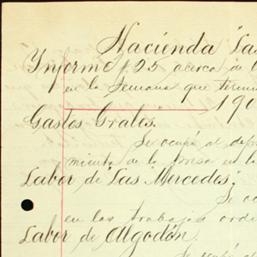 Hacienda "La
Informe # 25 acerca de l
en la semana que termin
190
Gastos Grales.
Se ocupó al dep
miento de la presa en l
Labor de "Las Mercedes".
Se oc
en los trabajos ord
Labor de Algodón.
Se ocupó al